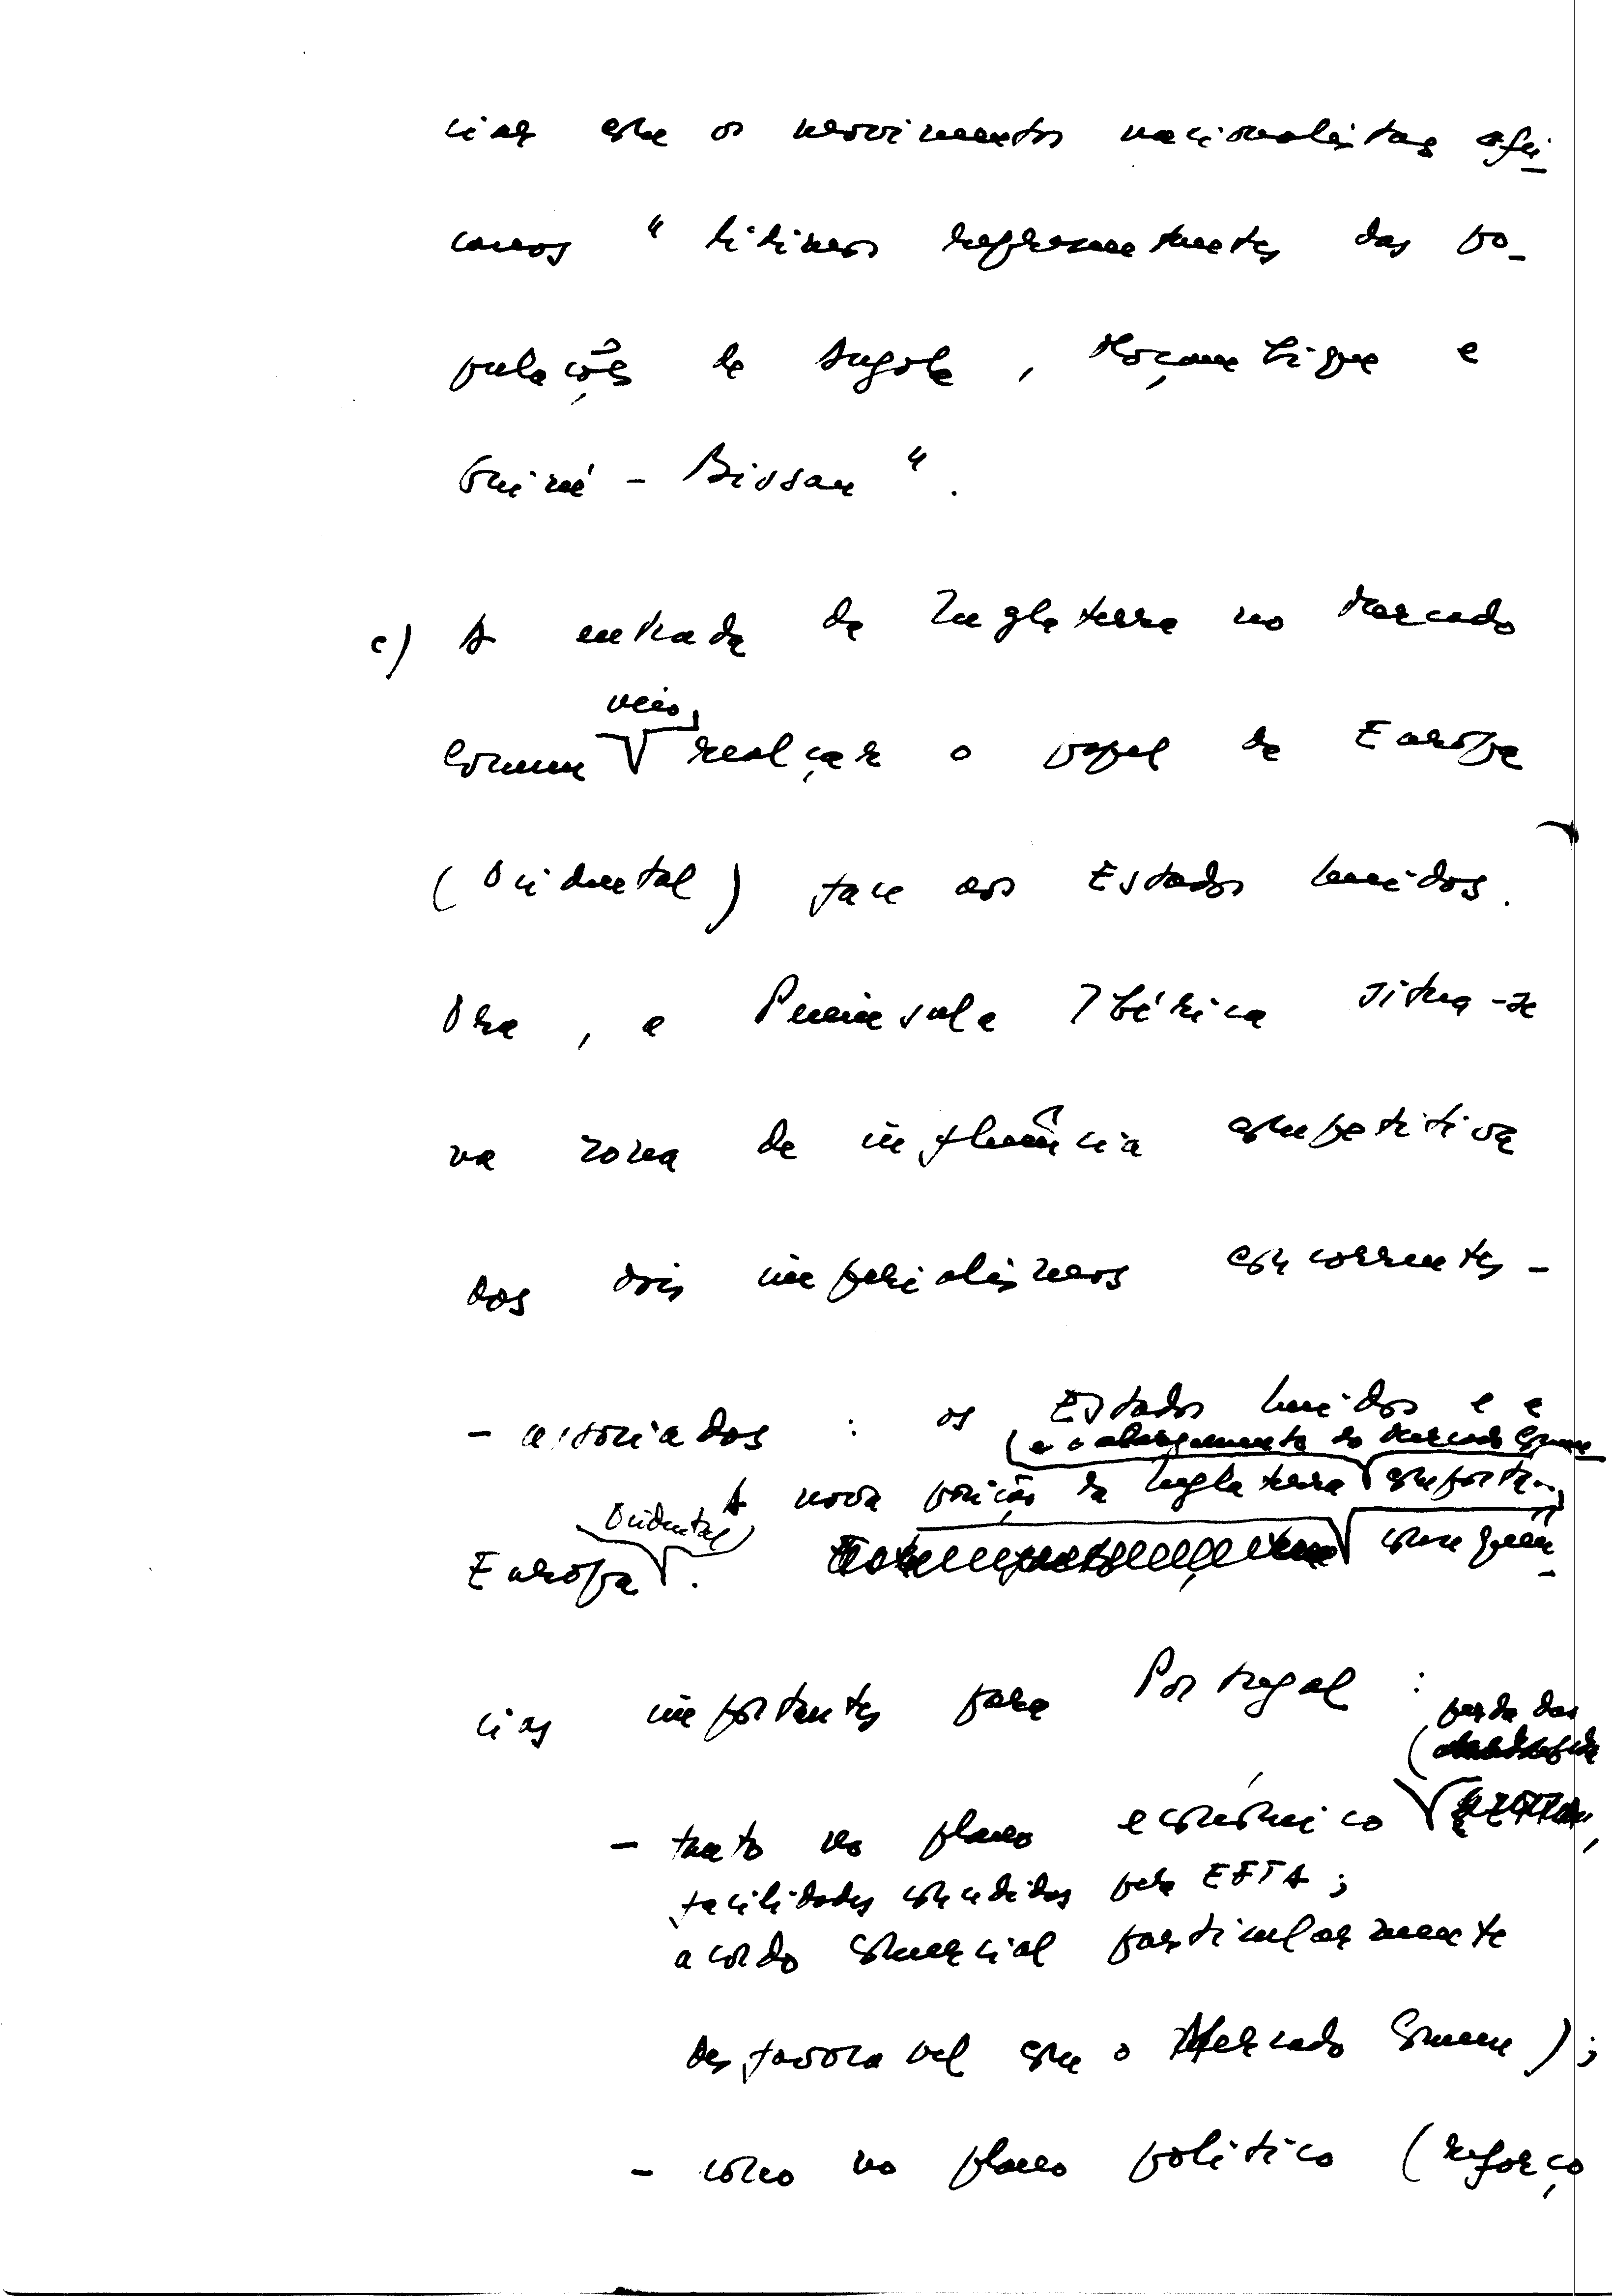 ciar com os movimentos nacionalistas afri
canos "lídimos representantes das po-
pulações de Angola, Moçambique e
Guiné-Bissau".
c) A entrada da Inglaterra no Mercado
veio
Comum realçar o papel da Europa
(Ocidental) face aos Estados Unidos.
Ora, a Península Ibérica situa-se
na zona de influência competitiva
dos dois imperialismos concorrentes-
- associados : os Estados Unidos e a
(e o alargamento do Mercado Comum
A nova posição da Inglaterra comporta
Ocidental
Europa . consequên
cias importantes para Portugal :
perda das
- tanto no plano económico (
facilidades concedidas pela EFTA;
acordo comercial particularmente
desfavorável com o Mercado Comum);
- como no plano político (reforço